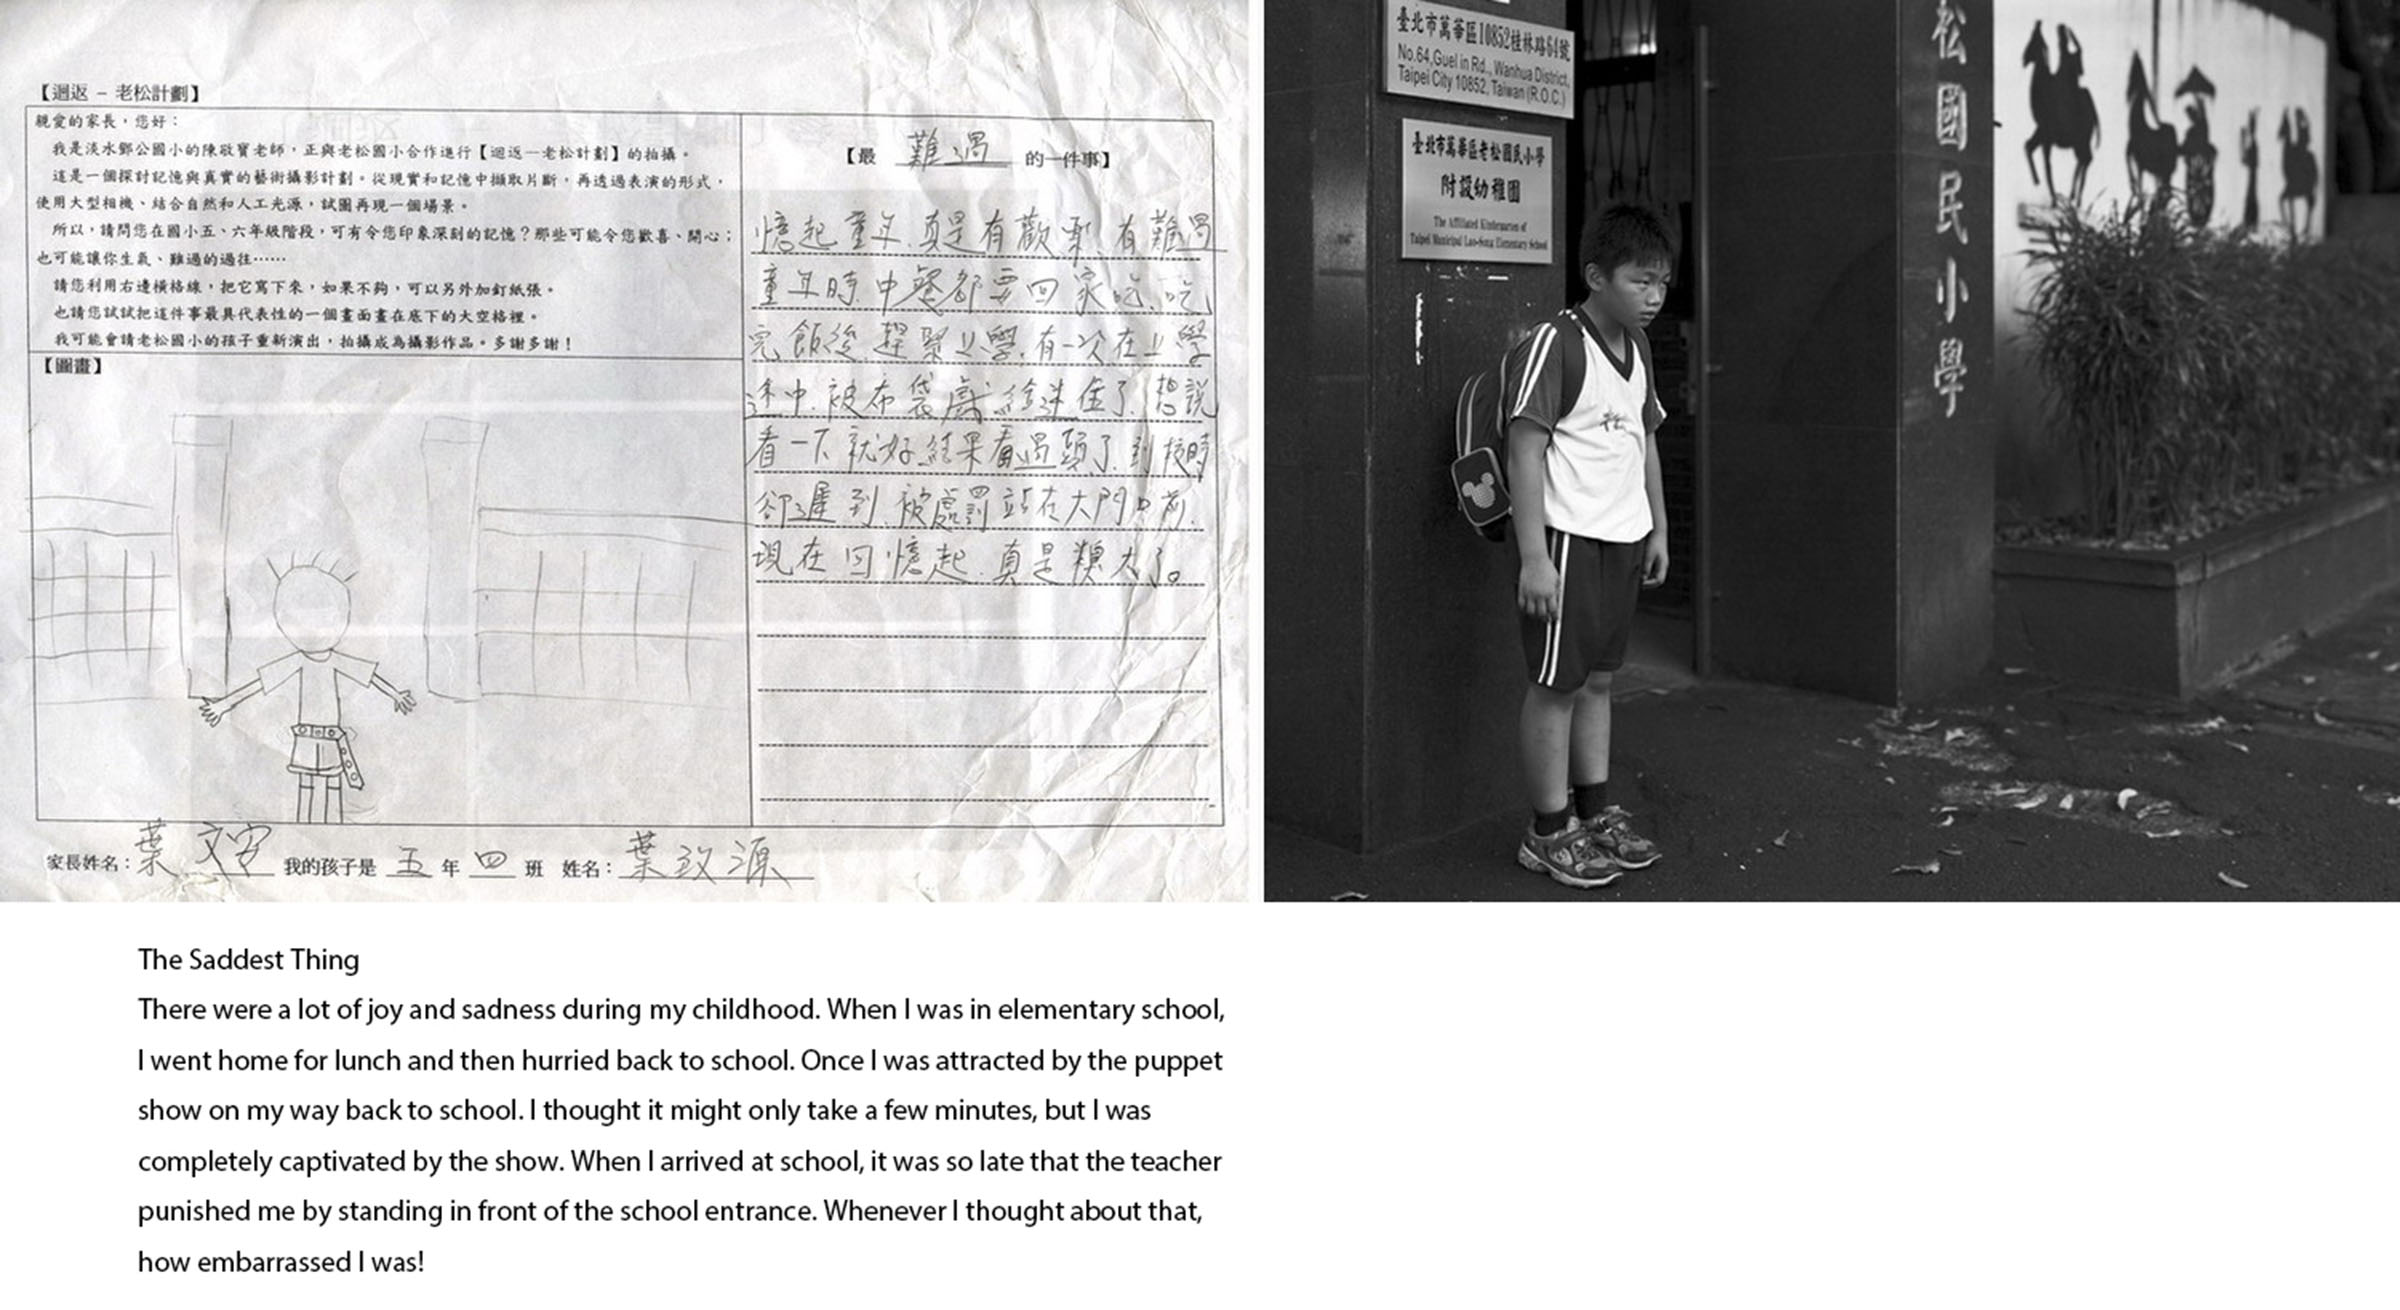 【迴返 – 老松計劃】
親愛的家長，您好：
我是淡水鄧公國小的陳敬寶老師，正與老松國小合作進行【迴返—老松計劃】的拍攝。
這是一個探討記憶與真實的藝術攝影計劃。從現實和記憶中擷取片斷，再透過表演的形式，
使用大型相機、結合自然和人工光源，試圖再現一個場景。
所以，請問您在國小五、六年級階段，可有令您印象深刻的記憶？那些可能令您歡喜、開心；
也可能讓你生氣、難過的過往……
請您利用右邊橫格線，把它寫下來，如果不夠，可以另外加釘紙張。
也請您試試把這件事最具代表性的一個畫面畫在底下的大空格裡。
我可能會請老松國小的孩子重新演出，拍攝成為攝影作品。多謝多謝！
【圖畫】
【最 難過 的一件事】
憶起童年.真是有歡樂.有難過
童年時.中餐都要回家吃.吃
完飯後.趕緊上學.有一次在上學
途中.被布袋戲給迷住了.想說
看一下就好.結果看過頭了.到校時
卻遲到.被處罰站在大門口前.
現在回憶起.真是糗大了。
家長姓名：葉文安 我的孩子是 五 年 四 班 姓名：葉致源
臺北市萬華區10852桂林路64號
No.64,Guel in Rd., Wanhua District,
Taipei City 10852, Taiwan (R.O.C.)
臺北市萬華區老松國民小學
附設幼稚園
The Affiliated Kindergarten of
Taipei Municipal Lao-Song Elementary School
松國民小學
The Saddest Thing
There were a lot of joy and sadness during my childhood. When I was in elementary school,
I went home for lunch and then hurried back to school. Once I was attracted by the puppet
show on my way back to school. I thought it might only take a few minutes, but I was
completely captivated by the show. When I arrived at school, it was so late that the teacher
punished me by standing in front of the school entrance. Whenever I thought about that,
how embarrassed I was!